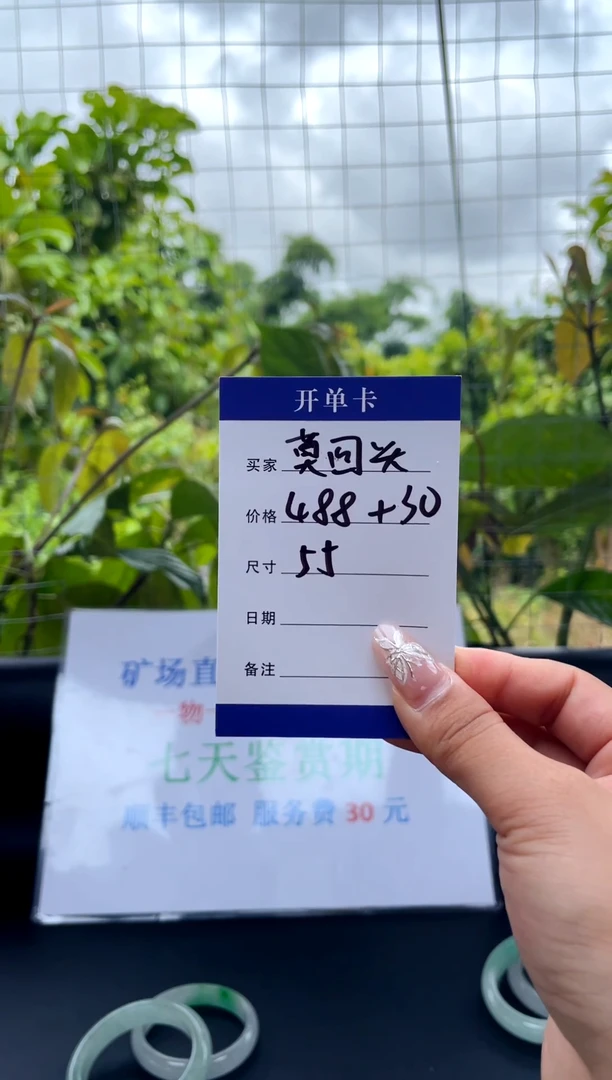 开单卡
买家 莫回头
价格 488+30
尺寸 55
日期
备注
矿场直
一物一
七天鉴赏期
顺丰包邮 服务费 30 元